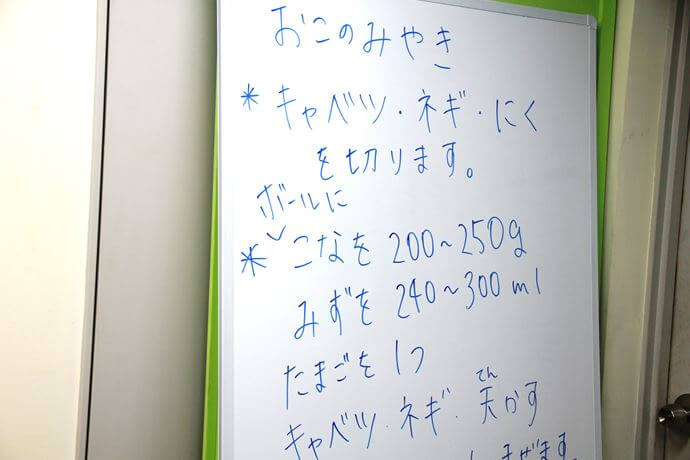 おこのみやき
* キャベツ・ネギ・にく
を切ります。
ボールに
* こなを 200~250g
みずを 240~300ml
たまごを1つ
てん
キャベツ・ネギ・天かす
まぜます。